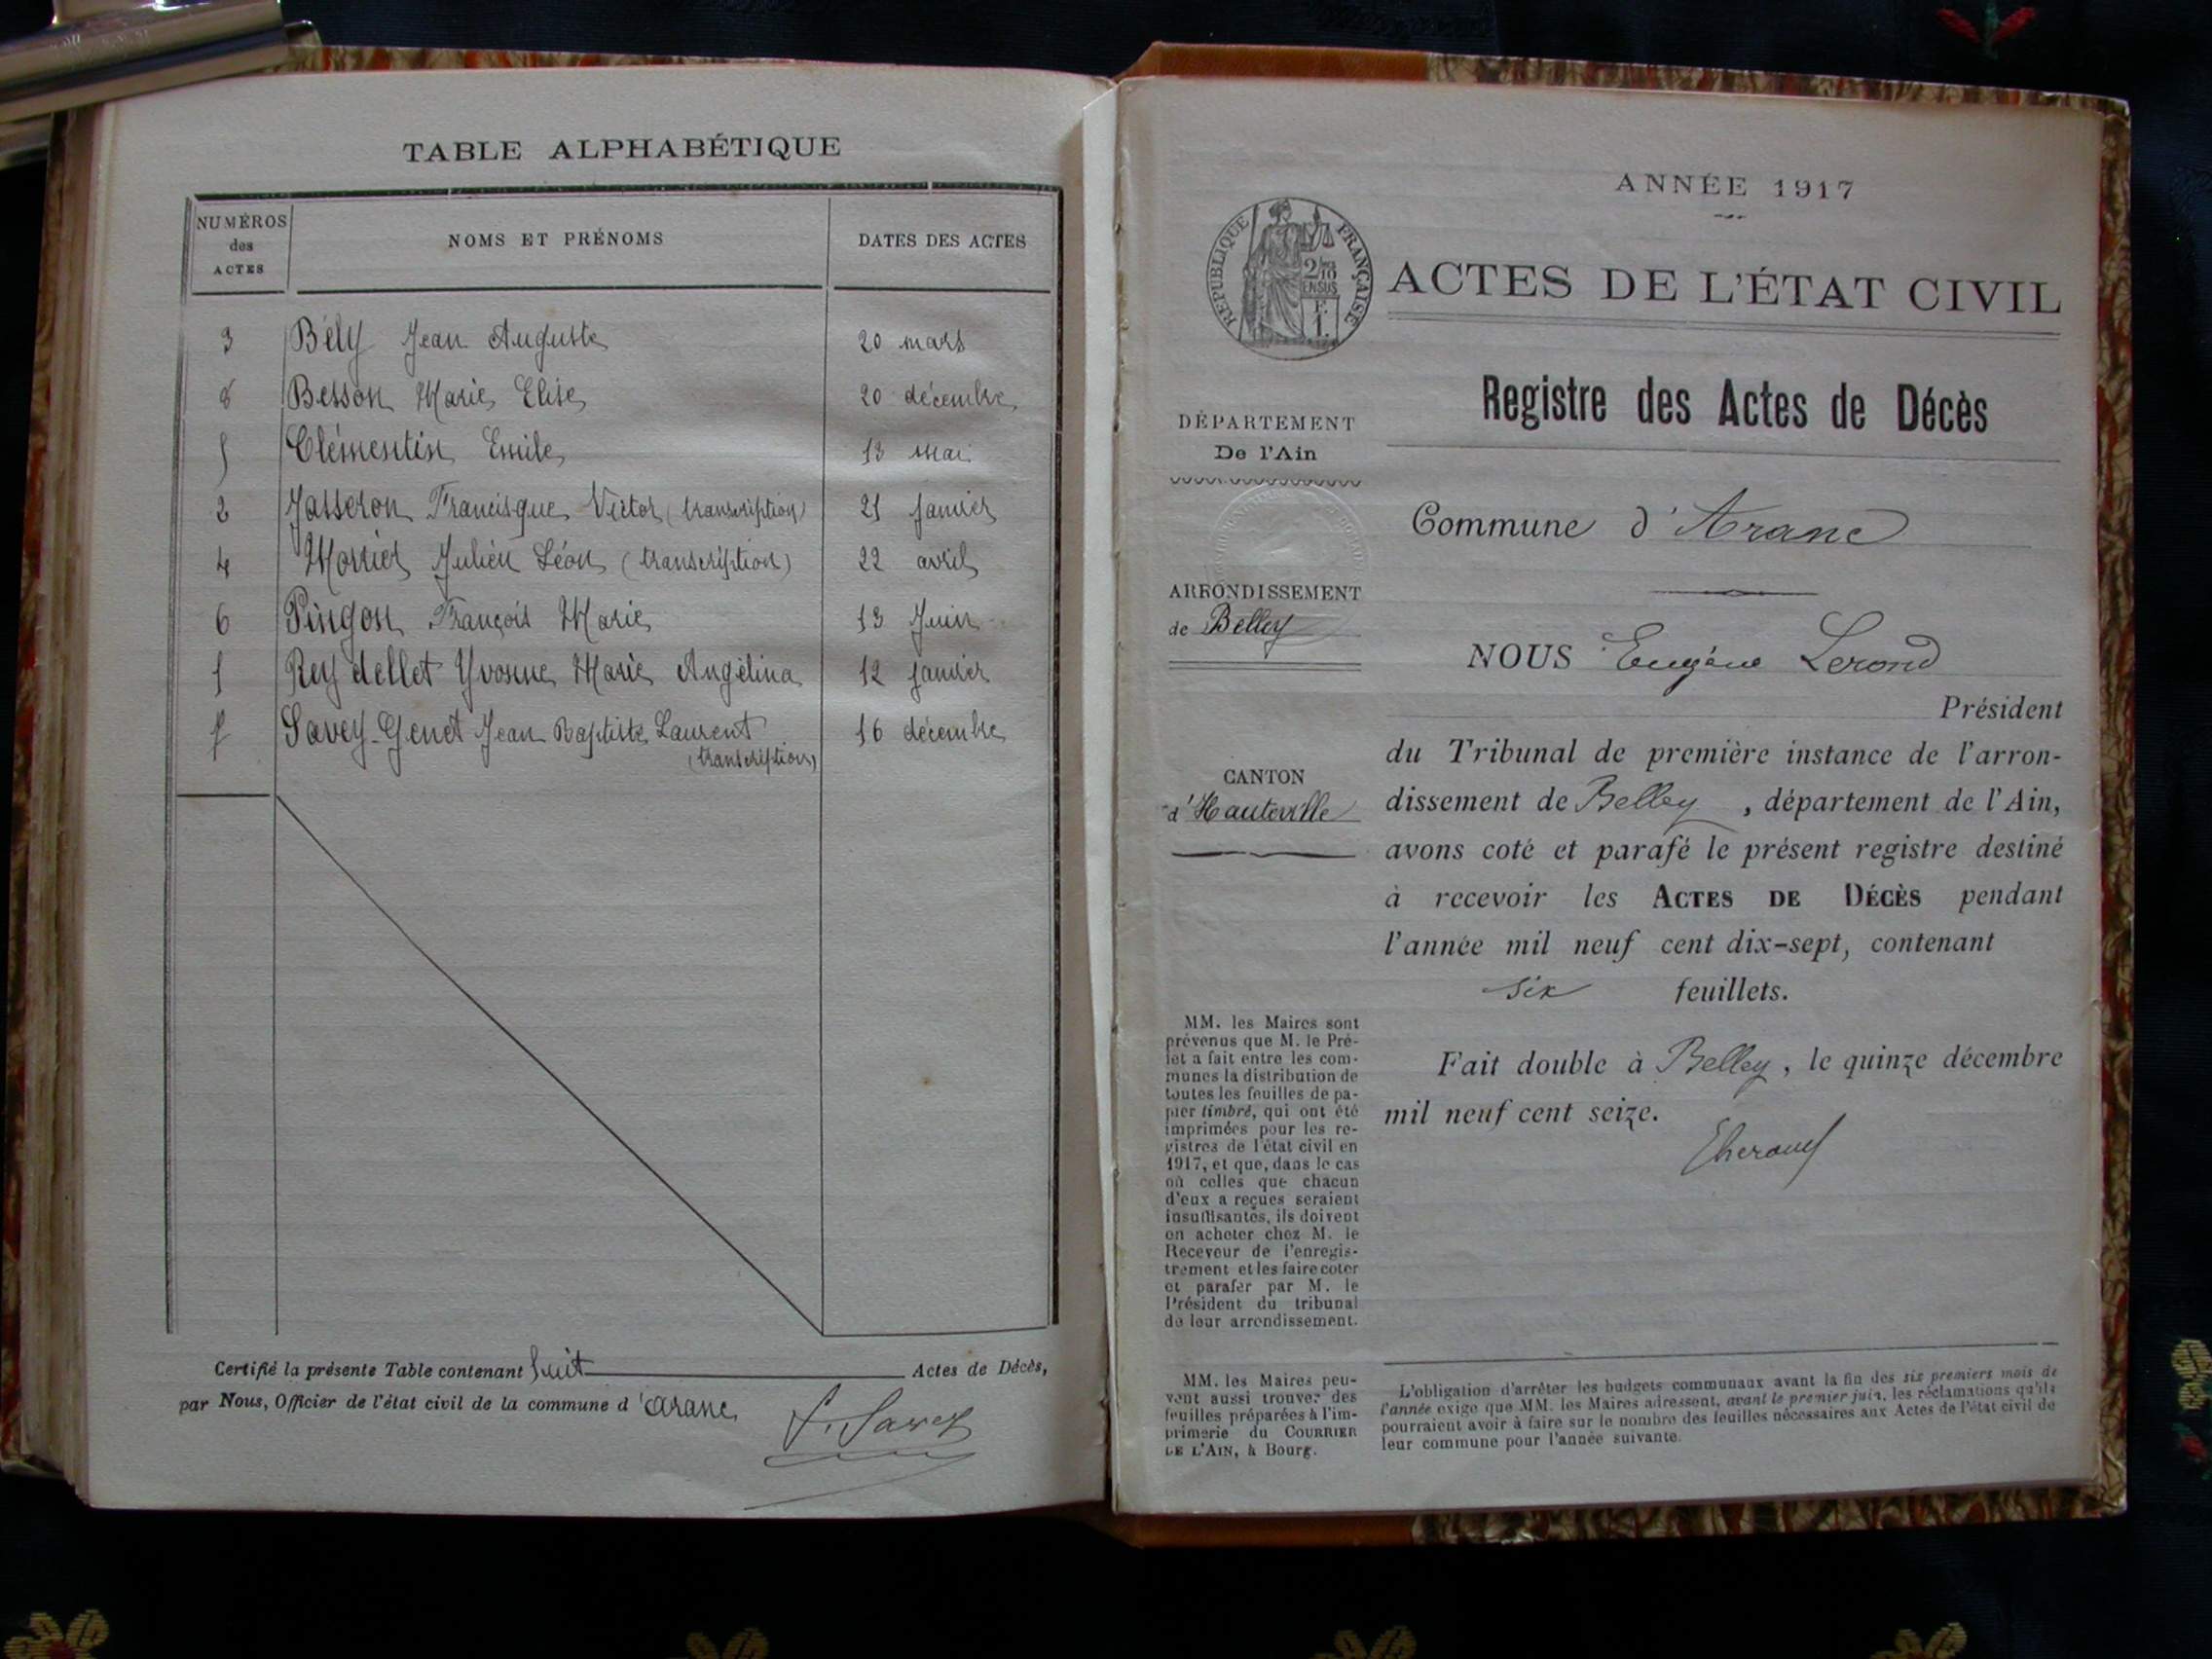 TABLE ALPHABÉTIQUE
NUMÉROS des ACTES NOMS ET PRÉNOMS DATES DES ACTES
3 Bély Jean Auguste 20 mars
8 Besson Marie Elise 20 décembre
5 Clémentin Emile 13 mai
2 Jasseron Francisque Victor (transcription) 21 janvier
4 Morrier Julien Léon (transcription) 22 avril
6 Pingon François Marie 13 Juin
1 Reydellet Yvonne Marie Angélina 12 janvier
7 Savey-Genet Jean Baptiste Laurent 16 décembre
(transcription)
Certifié la présente Table contenant huit Actes de Décès,
par Nous, Officier de l'état civil de la commune d'Aranc
F. Savey
ANNÉE 1917
RÉPUBLIQUE FRANÇAISE
2/10 EN SUS
F.
1.
ACTES DE L'ÉTAT CIVIL
Registre des Actes de Décès
DÉPARTEMENT
De l'Ain
ARRONDISSEMENT
de Belley
CANTON
d'Hauteville
Commune d'Aranc
NOUS Eugène Lerond
Président
du Tribunal de première instance de l'arron-
dissement de Belley, département de l'Ain,
avons coté et parafé le présent registre destiné
à recevoir les ACTES DE DÉCÈS pendant
l'année mil neuf cent dix-sept, contenant
six feuillets.
Fait double à Belley, le quinze décembre
mil neuf cent seize.
MM. les Maires sont
prévenus que M. le Pré-
fet a fait entre les com-
munes la distribution de
toutes les feuilles de pa-
pier timbré, qui ont été
imprimées pour les re-
gistres de l'état civil en
1917, et que, dans le cas
où celles que chacun
d'eux a reçues seraient
insuffisantes, ils doivent
en acheter chez M. le
Receveur de l'enregis-
trement et les faire coter
et parafer par M. le
Président du tribunal
de leur arrondissement.
MM. les Maires peu-
vent aussi trouver des
feuilles préparées à l'im-
primerie du COURRIER
DE L'AIN, à Bourg.
L'obligation d'arrêter les budgets communaux avant la fin des six premiers mois de
l'année exige que MM. les Maires adressent, avant le premier juin, les réclamations qu'ils
pourraient avoir à faire sur le nombre des feuilles nécessaires aux Actes de l'état civil de
leur commune pour l'année suivante.